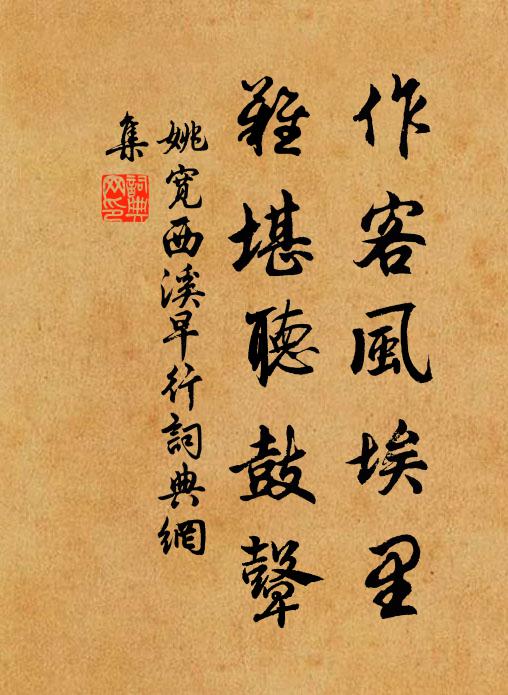 作客風埃里
難堪聽鼓鼙
姚寬西溪早行詞典網
集
詞典
网印